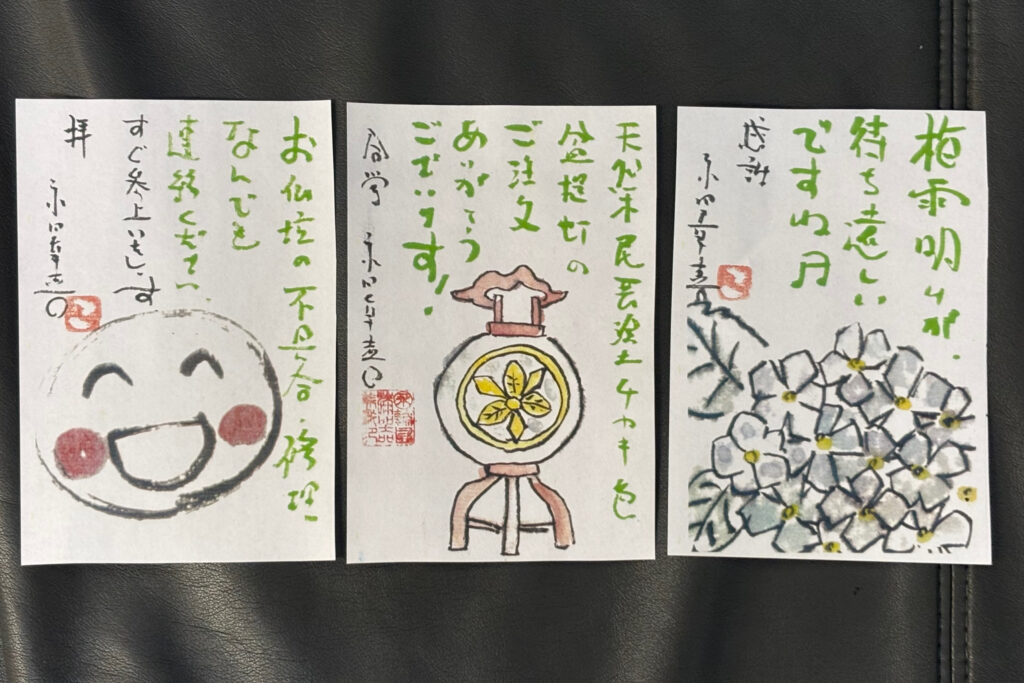 梅雨明けが
待ち遠しい
ですね
感謝
天然木民芸塗りケヤキ色
盆提灯の
ご注文
ありがとう
ございます!
合掌
お仏壇の不具合・修理
なんでも
連絡ください。
すぐ参上いたします
拝